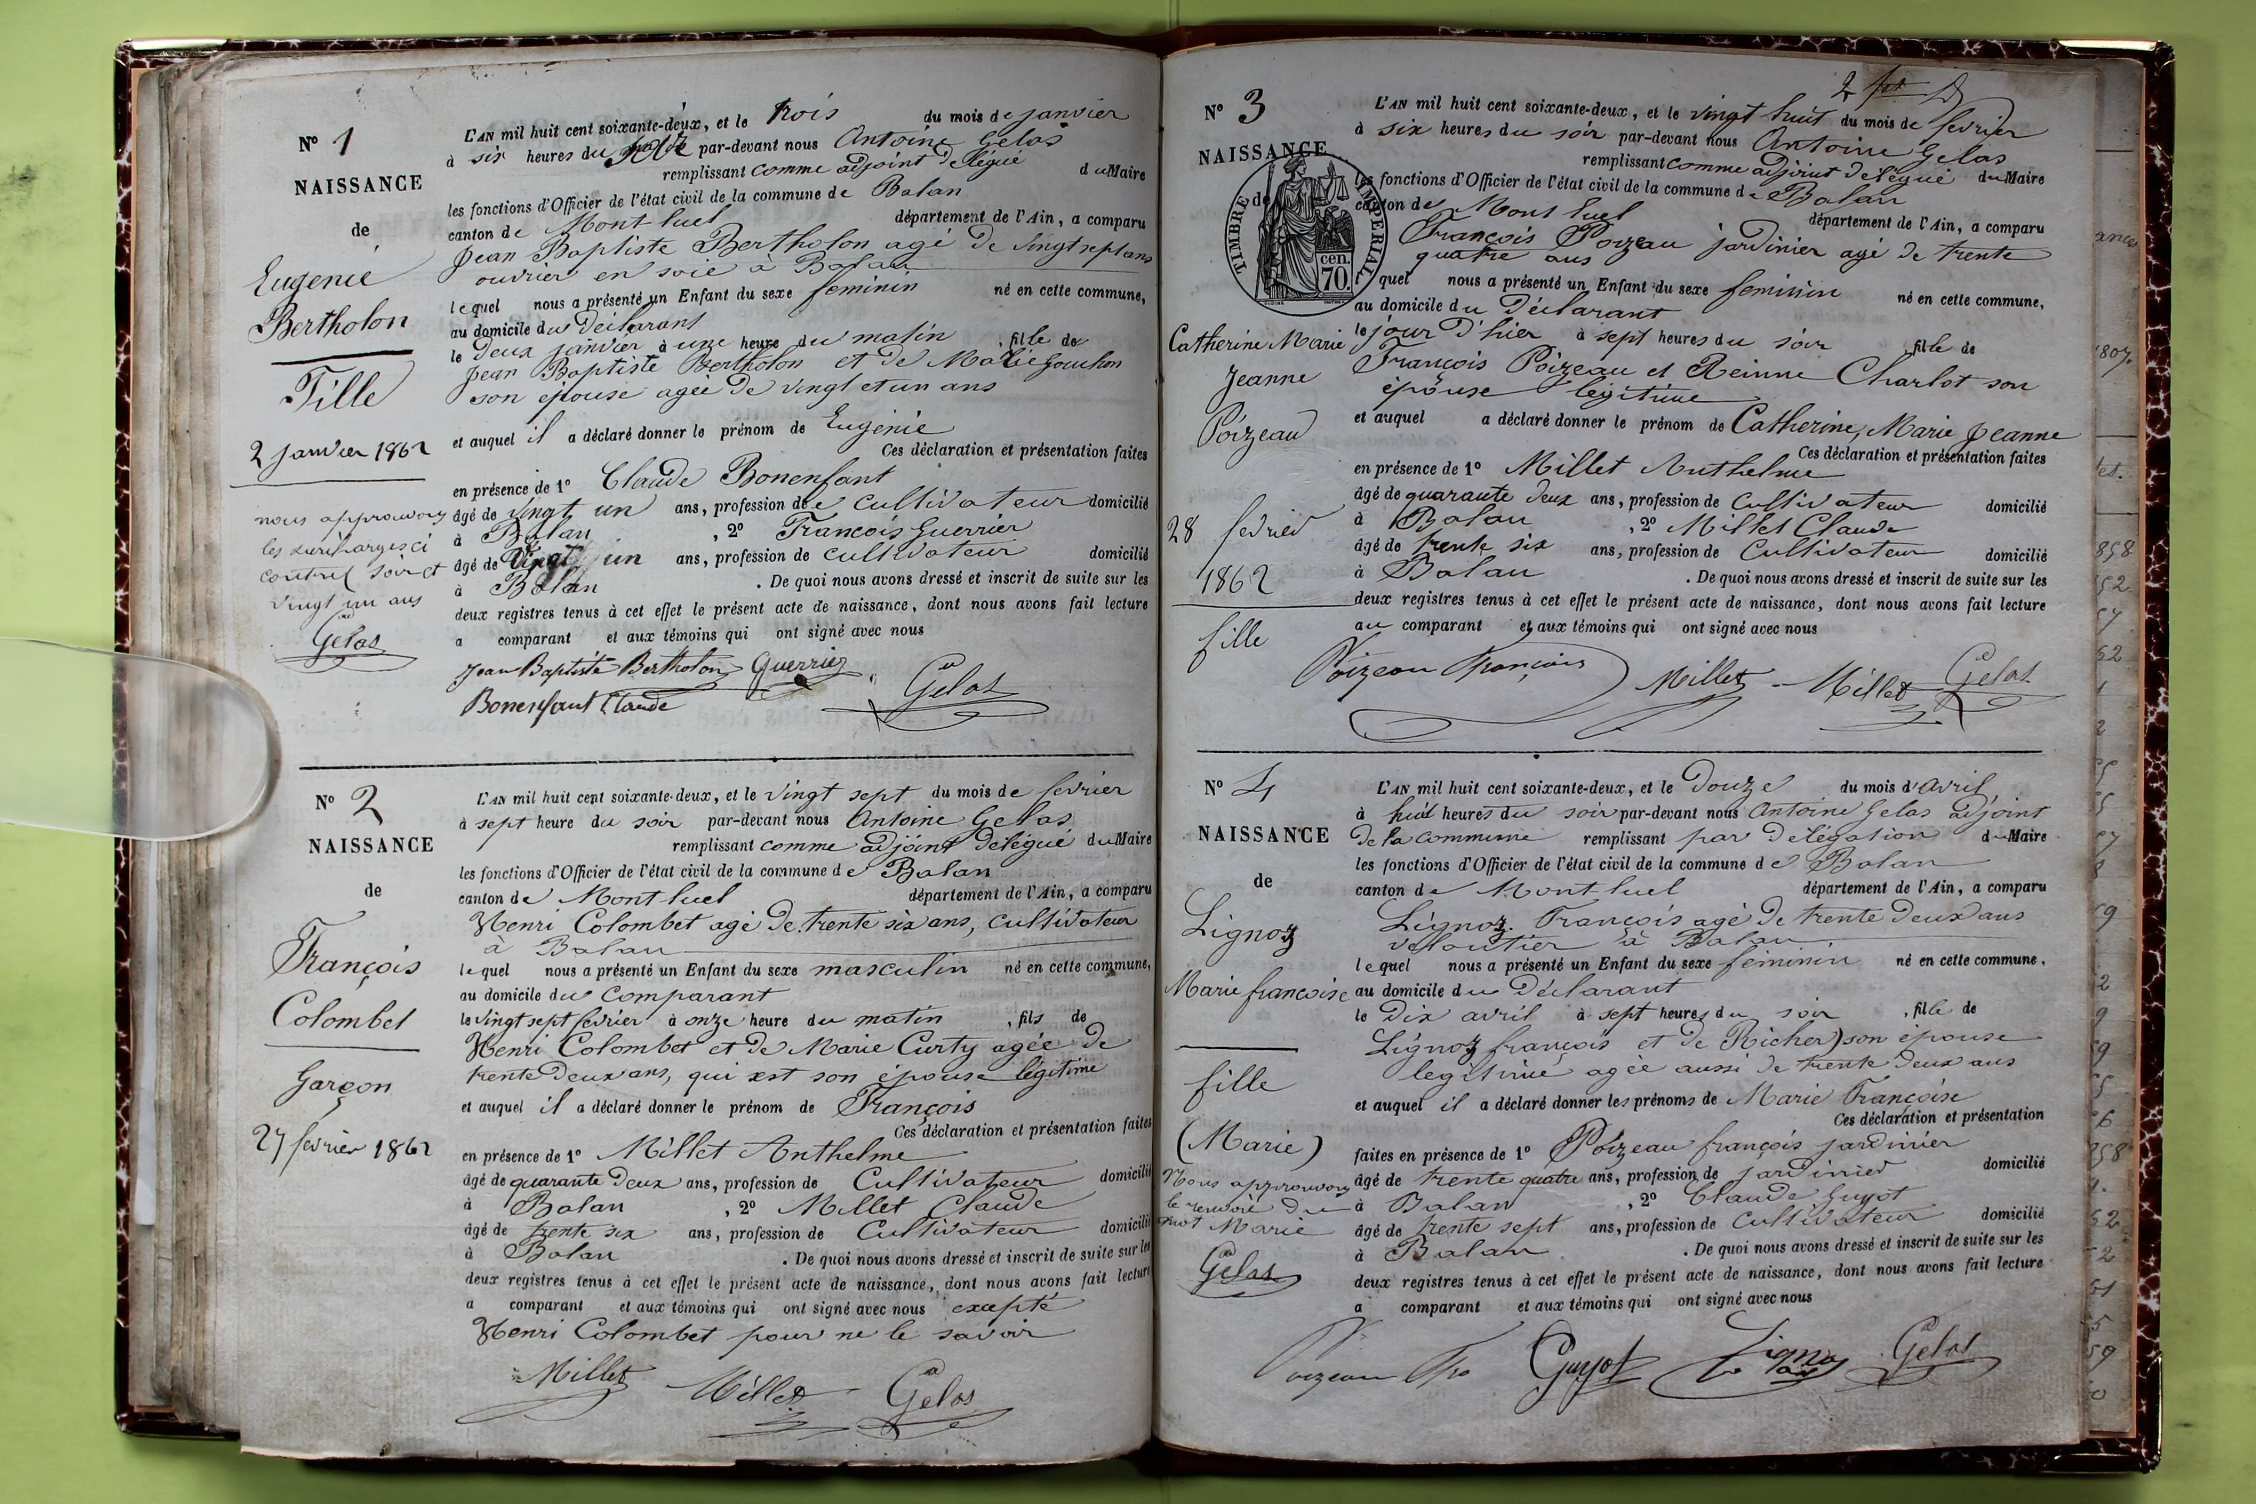 N° 1
NAISSANCE
de
Eugenie
Bertholon
Fille
2 janvier 1862
nous approuvons
les surcharges ci
contre soir et
vingt un ans
Gelas
L'AN mil huit cent soixante-deux, et le trois du mois de janvier
à six heures du soir par-devant nous Antoine Gelas
remplissant comme adjoint délégué du Maire
les fonctions d'Officier de l'état civil de la commune de Balan
canton de Montluel département de l'Ain, a comparu
Jean Baptiste Bertholon agé de vingt sept ans
ouvrier en soie à Balan
lequel nous a présenté un Enfant du sexe feminin né en cette commune,
au domicile du Déclarant
le deux janvier à une heure du matin, fille de
Jean Baptiste Bertholon et de Marie Gouchon
son épouse agée de vingt et un ans
et auquel il a déclaré donner le prénom de Eugénie
Ces déclaration et présentation faites
en présence de 1° Claude Bonenfant
âgé de vingt un ans, profession de cultivateur domicilié
à Balan, 2° François Guerrier
âgé de vingt un ans, profession de cultivateur domicilié
à Balan. De quoi nous avons dressé et inscrit de suite sur les
deux registres tenus à cet effet le présent acte de naissance, dont nous avons fait lecture
a comparant et aux témoins qui ont signé avec nous
Jean Baptiste Bertholon Guerrier
Bonenfant Claude Gelas
N° 2
NAISSANCE
de
François
Colombet
Garçon
27 fevrier 1862
L'AN mil huit cent soixante-deux, et le vingt sept du mois de fevrier
à sept heure du soir par-devant nous Antoine Gelas
remplissant comme adjoint délégué du Maire
les fonctions d'Officier de l'état civil de la commune de Balan
canton de Montluel département de l'Ain, a comparu
Henri Colombet agé de trente six ans, cultivateur
à Balan
lequel nous a présenté un Enfant du sexe masculin né en cette commune,
au domicile du comparant
le vingt sept fevrier à onze heure du matin, fils de
Henri Colombet et de Marie Curty agée de
trente deux ans, qui est son épouse légitime
et auquel il a déclaré donner le prénom de François
Ces déclaration et présentation faites
en présence de 1° Millet Anthelme
âgé de quarante deux ans, profession de Cultivateur domicilié
à Balan, 2° Millet Claude
âgé de trente six ans, profession de Cultivateur domicilié
à Balan. De quoi nous avons dressé et inscrit de suite sur les
deux registres tenus à cet effet le présent acte de naissance, dont nous avons fait lecture
a comparant et aux témoins qui ont signé avec nous excepté
Henri Colombet pour ne le savoir
Millet Millet Gelas
N° 3
NAISSANCE
de
TIMBRE IMPERIAL
70 cen.
Catherine Marie
Jeanne
Poizeau
28 fevrier
1862
fille
L'AN mil huit cent soixante-deux, et le vingt huit du mois de fevrier
à six heures du soir par-devant nous Antoine Gelas
remplissant comme adjoint délégué du Maire
les fonctions d'Officier de l'état civil de la commune de Balan
canton de Montluel département de l'Ain, a comparu
François Poizeau jardinier agé de trente
quatre ans
quel nous a présenté un Enfant du sexe feminin né en cette commune,
au domicile du Déclarant
le jour d'hier à sept heures du soir, fille de
François Poizeau et Reinne Charlot son
épouse légitime
et auquel a déclaré donner le prénom de Catherine, Marie Jeanne
Ces déclaration et présentation faites
en présence de 1° Millet Anthelme
âgé de quarante deux ans, profession de cultivateur domicilié
à Balan, 2° Millet Claude
âgé de trente six ans, profession de Cultivateur domicilié
à Balan. De quoi nous avons dressé et inscrit de suite sur les
deux registres tenus à cet effet le présent acte de naissance, dont nous avons fait lecture
au comparant et aux témoins qui ont signé avec nous
Poizeau François Millet Millet Gelas
N° 4
NAISSANCE
de
Lignoz
Marie francoise
fille
(Marie)
Nous approuvons
le renvoie du
mot Marie
Gelas
L'AN mil huit cent soixante-deux, et le Douze du mois d'avril
à huit heures du soir par-devant nous Antoine Gelas adjoint
de la commune remplissant par délégation du Maire
les fonctions d'Officier de l'état civil de la commune de Balan
canton de Montluel département de l'Ain, a comparu
Lignoz François agé de trente deux ans
veloutier à Balan
lequel nous a présenté un Enfant du sexe féminin né en cette commune,
au domicile du Déclarant
le Dix avril à sept heures du soir, fille de
Lignoz françois et de Richer) son épouse
legitime agée aussi de trente deux ans
et auquel il a déclaré donner les prénoms de Marie Françoise
Ces déclaration et présentation
faites en présence de 1° Poizeau françois jardinier
âgé de trente quatre ans, profession de jardinier domicilié
à Balan, 2° Claude Guyot
âgé de trente sept ans, profession de cultivateur domicilié
à Balan. De quoi nous avons dressé et inscrit de suite sur les
deux registres tenus à cet effet le présent acte de naissance, dont nous avons fait lecture
a comparant et aux témoins qui ont signé avec nous
Poizeau Fro Guyot Lignoz Gelas